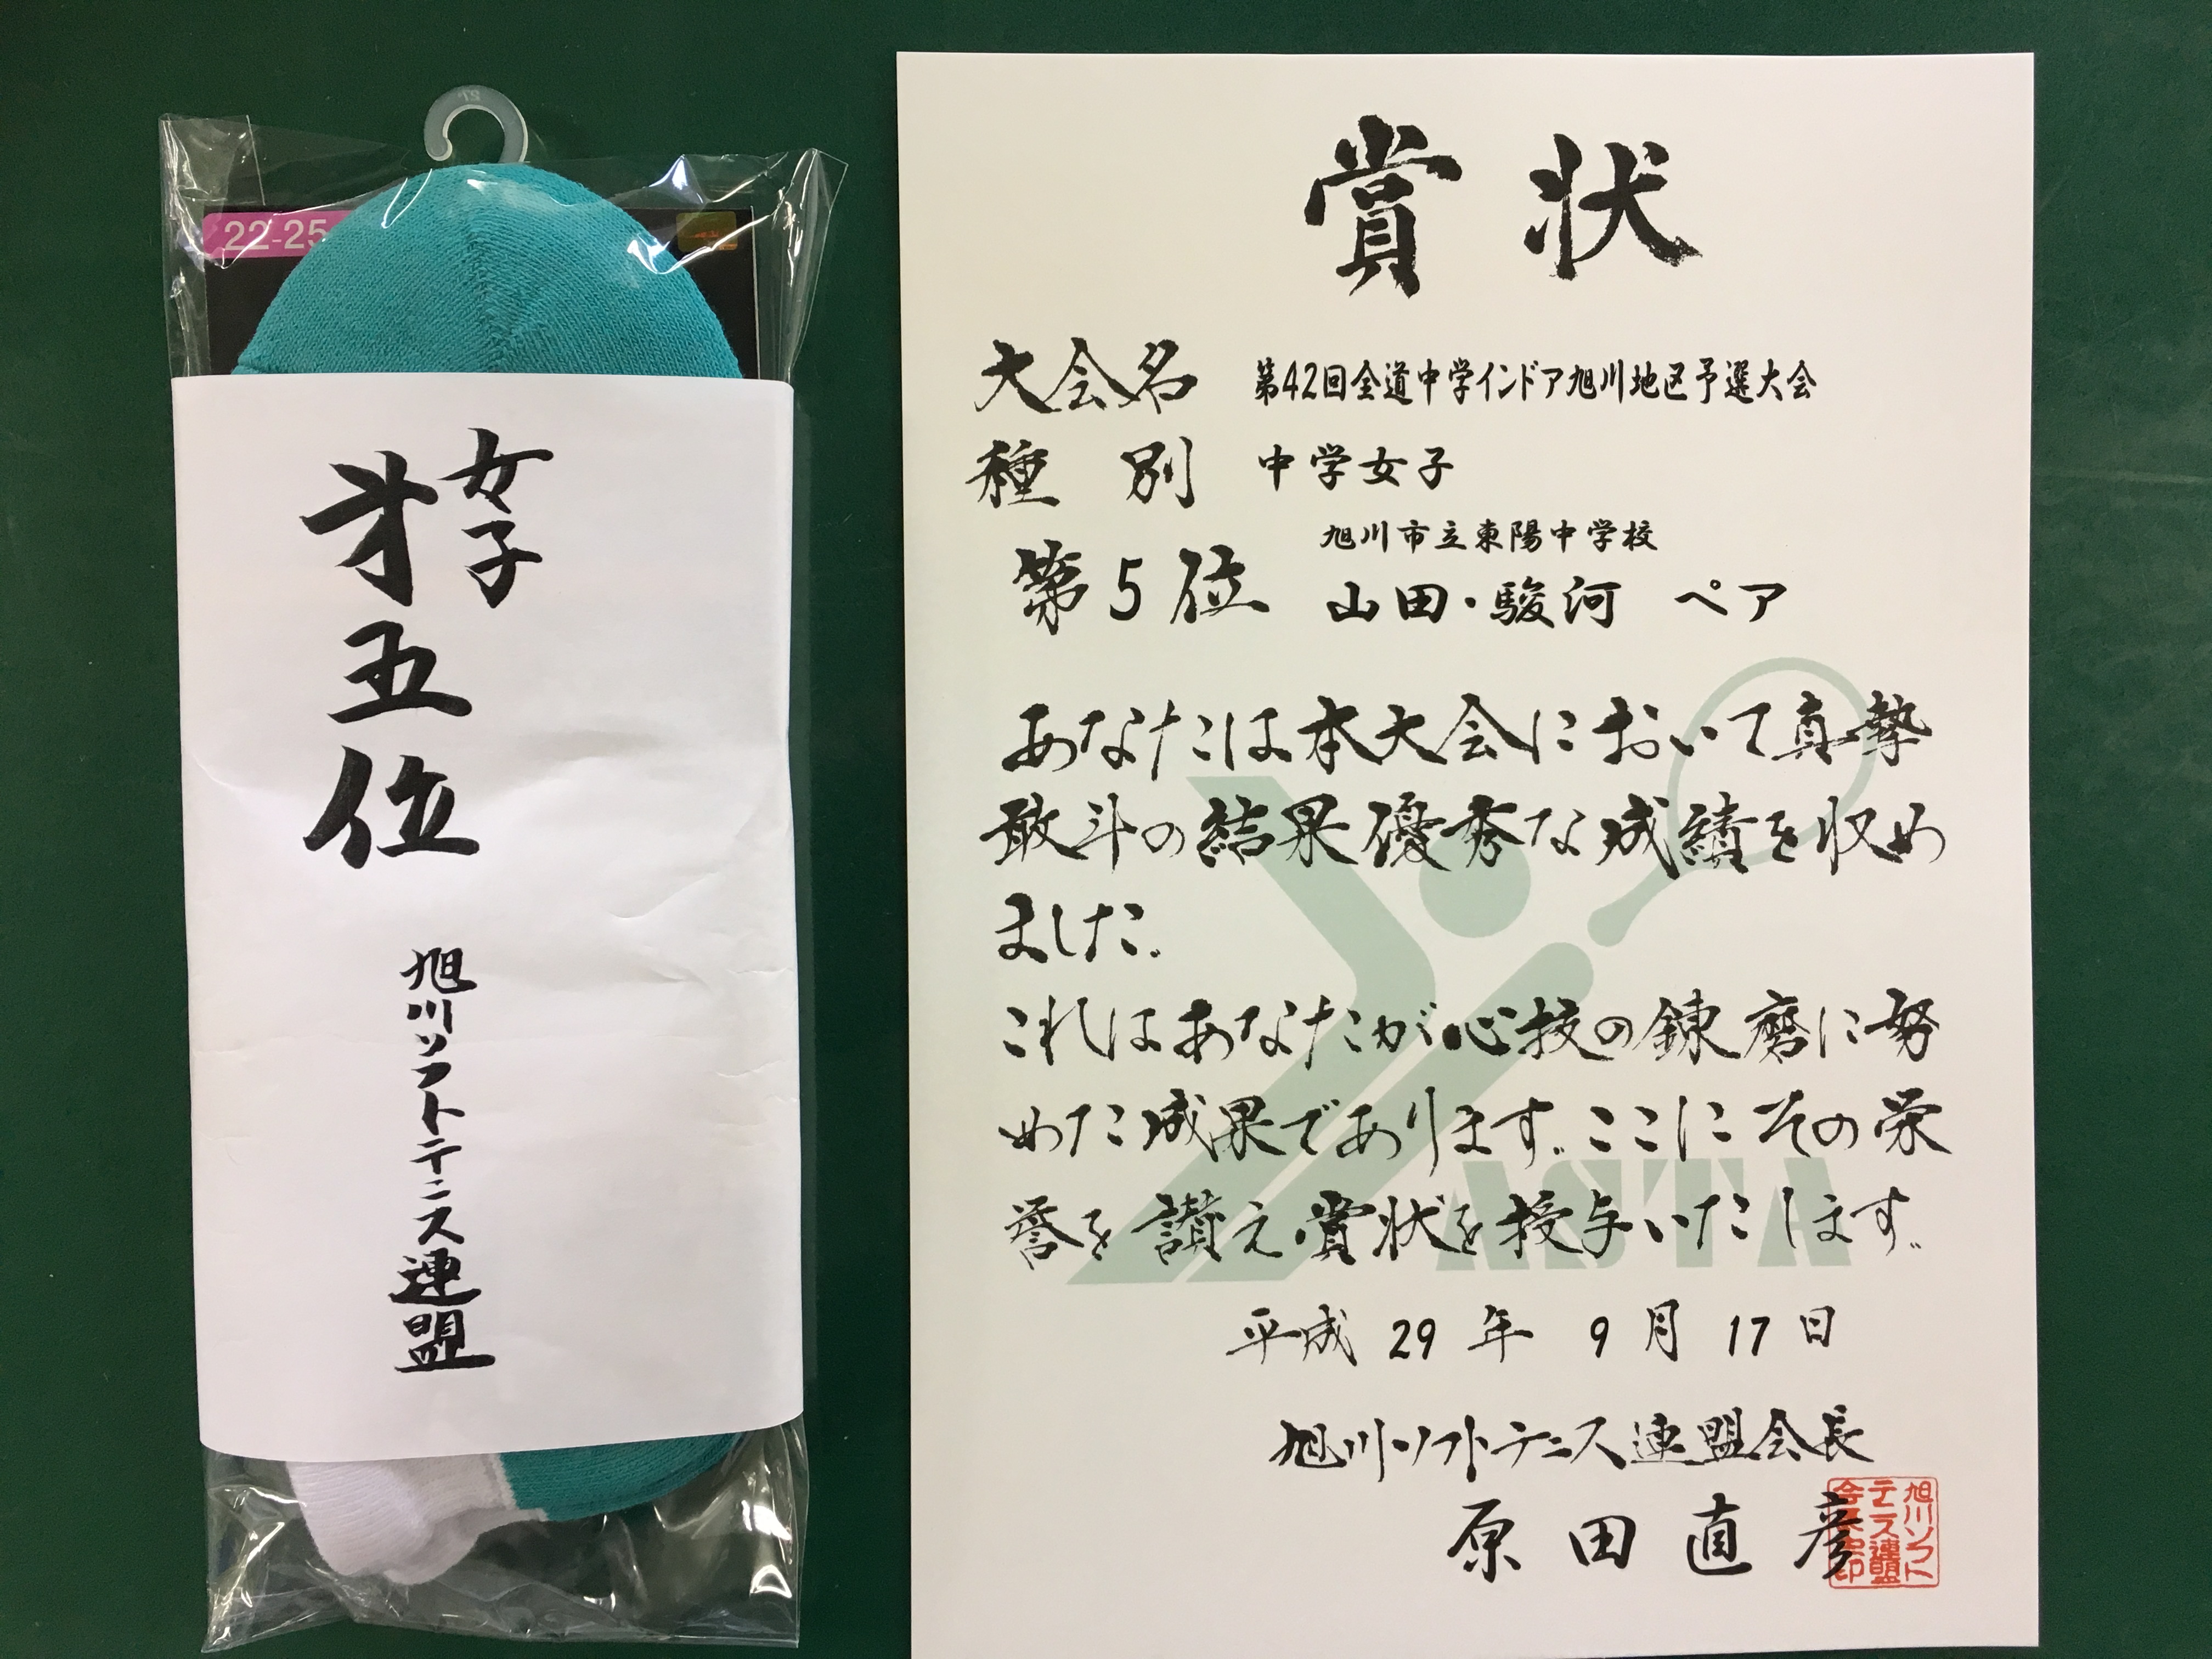 22-25
女子
第五位
旭川ソフトテニス連盟
賞状
大会名 第42回全道中学インドア旭川地区予選大会
種別 中学女子
旭川市立東陽中学校
第5位 山田・駿河 ペア
あなたは本大会において真摯
敢斗の結果優秀な成績を収め
ました。
これはあなたが心技の錬磨に努
めた成果であります。ここにその栄
誉を讃え賞状を授与いたします。
ASTA
平成 29 年 9 月 17 日
旭川ソフトテニス連盟会長
原田直彦
旭川ソフト
テニス連盟
会長之印